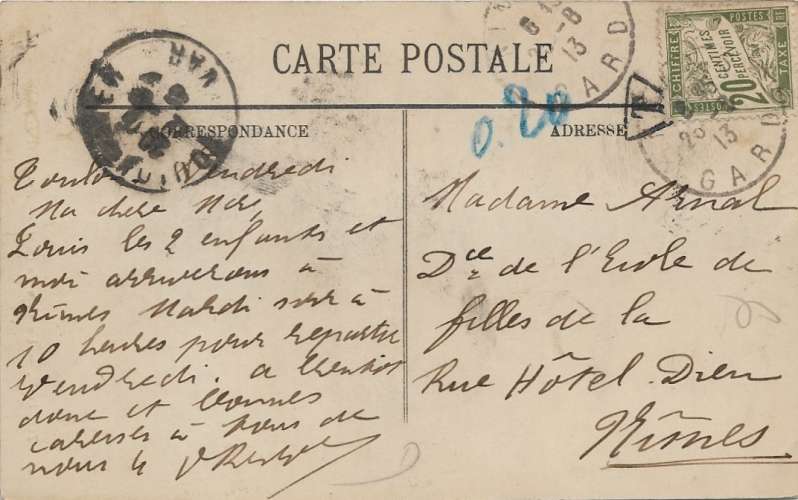 CARTE POSTALE
CORRESPONDANCE
ADRESSE
0.20
T
CHIFFRE
POSTES
TAXE
20 CENTIMES À PERCEVOIR
GARD
13
GARD
VAR
Toulon Vendredi
Ma chère Mère,
Louis les 2 enfants et
moi arriverons à
Nîmes Mardi soir à
10 heures pour repartir
Vendredi. a bientôt
donc et bonnes
caresses à tous de
nous 4
Madame Arnal
Dce de l'Ecole de
filles de la
Rue Hôtel-Dieu
Nîmes